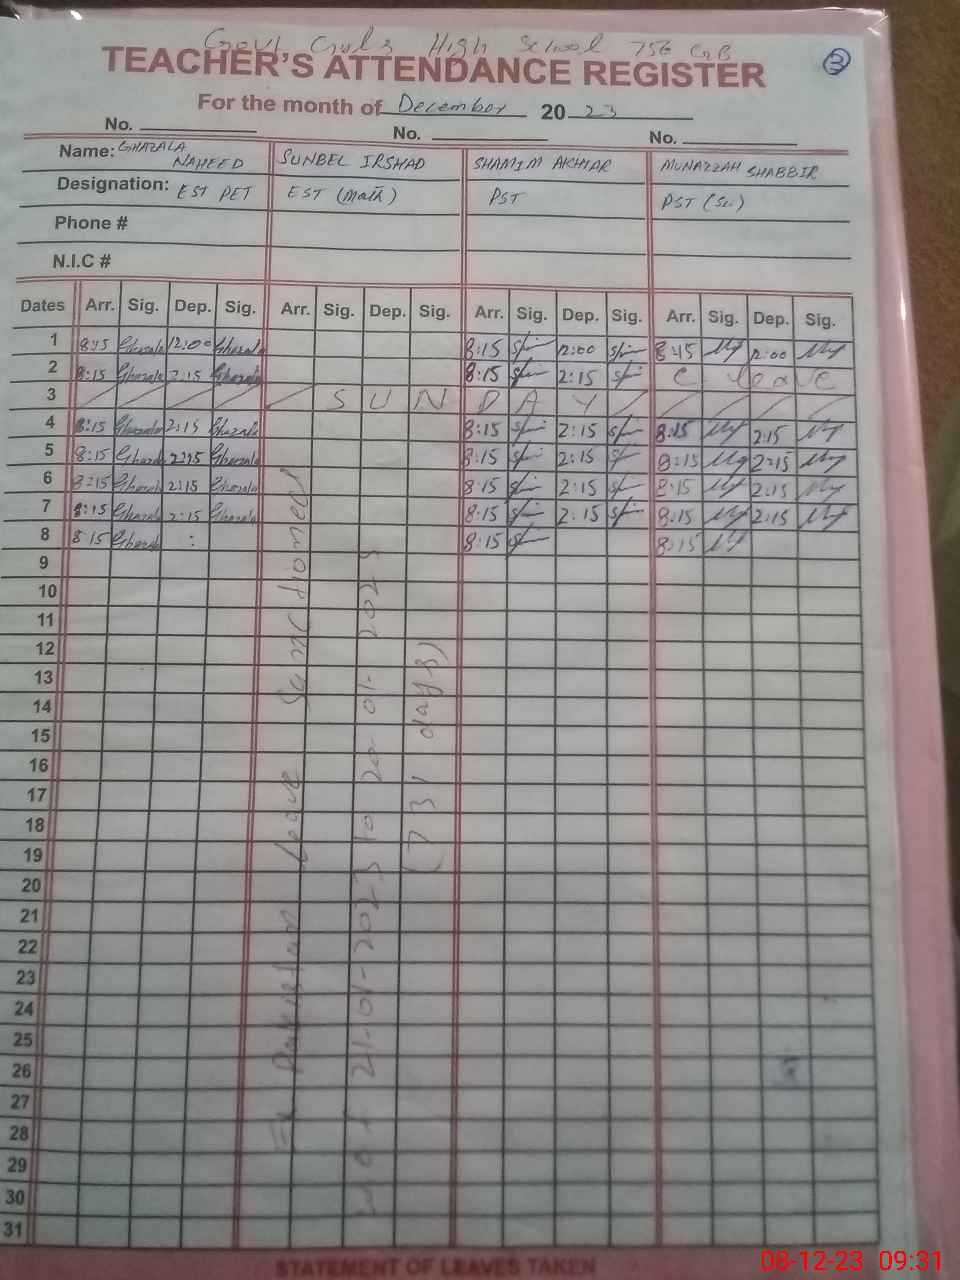 Govt Girls High School 756 GB
TEACHER'S ATTENDANCE REGISTER
3
For the month of December 2023
No. No. No.
Name: GHAZALA NAHEED SUNBEL IRSHAD SHAMIM AKHTAR MUNAZZAH SHABBIR
Designation: EST PET EST (Math) PST PST (Sci)
Phone #
N.I.C #
Dates Arr. Sig. Dep. Sig. Arr. Sig. Dep. Sig. Arr. Sig. Dep. Sig. Arr. Sig. Dep. Sig.
1 8:15 Ghazala 12:00 Ghazala 8:15 12:00 8:15 12:00
2 8:15 Ghazala 2:15 Ghazala 8:15 2:15 C. leave
3 SUNDAY
4 8:15 Ghazala 2:15 Ghazala 8:15 2:15 8:15 2:15
5 8:15 Ghazala 2:15 Ghazala 8:15 2:15 8:15 2:15
6 8:15 Ghazala 2:15 Ghazala 8:15 2:15 8:15 2:15
7 8:15 Ghazala 2:15 Ghazala 8:15 2:15 8:15 2:15
8 8:15 Ghazala : 8:15 8:15
9
10
11
12
13
14
15
16
17
18
19
20
21
22
23
24
25
26
27
28
29
30
31
Ex Pakistan Leave Sanctioned
w.e.f 21-01-2023 to 20-01-2025
(731 days)
STATEMENT OF LEAVES TAKEN
08-12-23 09:31